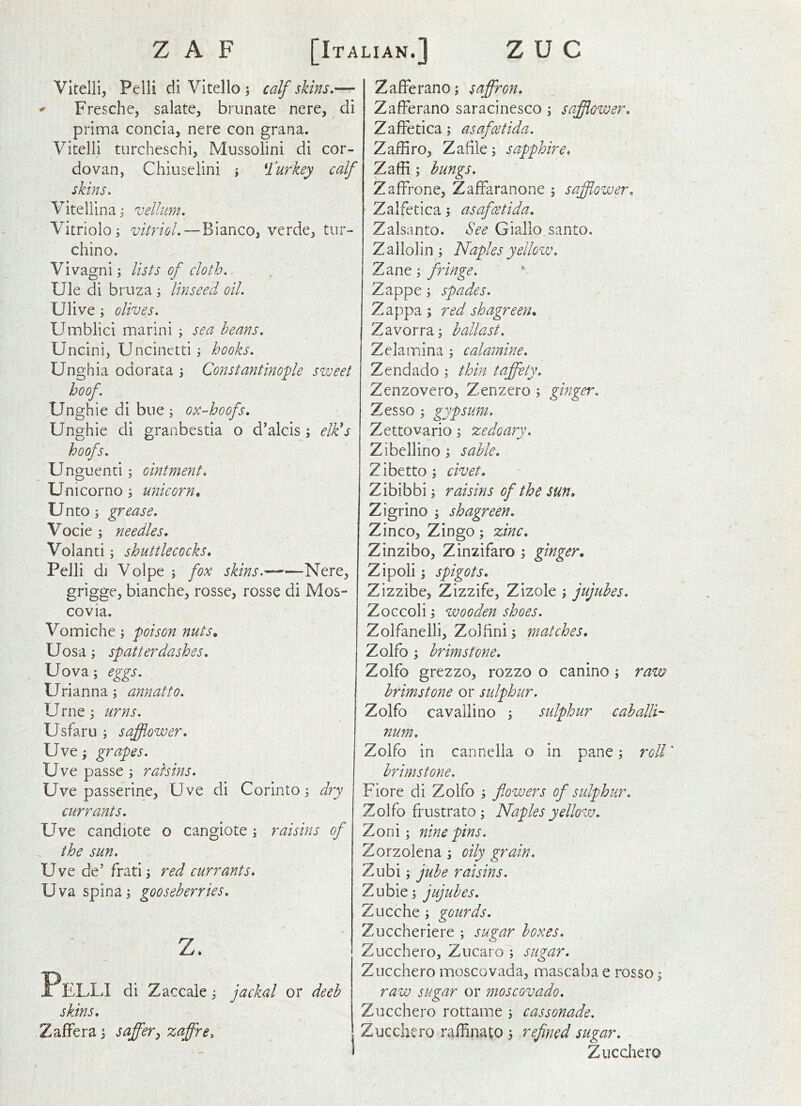 Z A F [Italian.] Z U C
Vitelli, Pelli di Vitello; calf skins.—
Fresche, salate, brunate nere, di
prima concia, nere con grana.
Vitelli turcheschi, Mussolini di cor-
dovan, Chiuselini; Turkey calf
skins.
Vitellina; vellum.
Vitriolo; vitriol.—Bianco, verde, tur-
chino.
Vivagni; lists of cloth.
Ule di bruza; linseed oil.
Ulive; olives.
Umblici marini; sea beans.
Uncini, Uncinetti; hooks.
Unghia odorata; Constantinople sweet
hoof.
Unghie di bue; ox-hoofs.
Unghie di granbestia o d'alcis; elk's
hoofs.
Unguenti; ointment.
Unicorno; unicorn.
Unto; grease.
Vocie; needles.
Volanti; shuttlecocks.
Pelli di Volpe; fox skins.——Nere,
grigge, bianche, rosse, rosse di Mos-
covia.
Vomiche; poison nuts.
Uosa; spatterdashes.
Uova; eggs.
Urianna; annatto.
Urne; urns.
Usfaru; safflower.
Uve; grapes.
Uve passe; raisins.
Uve passerine, Uve di Corinto; dry
currants.
Uve candiote o cangiote; raisins of
the sun.
Uve de' frati; red currants.
Uva spina; gooseberries.
Z.
PELLI di Zaccale; jackal or deeb
skins.
Zaffera; saffer, zaffre,
Zafferano; saffron.
Zafferano saracinesco; safflower.
Zaffetica; asafœtida.
Zaffiro, Zafile; sapphire.
Zaffi; bungs.
Zaffrone, Zaffaranone; safflower.
Zalfetica; asafœtida.
Zalsanto. See Giallo santo.
Zallolin; Naples yellow.
Zane; fringe.
Zappe; spades.
Zappa; red shagreen.
Zavorra; ballast.
Zelamina; calamine.
Zendado; thin taffety.
Zenzovero, Zenzero; ginger.
Zesso; gypsum.
Zettovario; zedoary.
Zibellino; sable.
Zibetto; civet.
Zibibbi; raisins of the sun.
Zigrino; shagreen.
Zinco, Zingo; zinc.
Zinzibo, Zinzifaro; ginger.
Zipoli; spigots.
Zizzibe, Zizzife, Zizole; jujubes.
Zoccoli; wooden shoes.
Zolfanelli, Zolfini; matches.
Zolfo; brimstone.
Zolfo grezzo, rozzo o canino; raw
brimstone or sulphur.
Zolfo cavallino; sulphur caballi-
num.
Zolfo in cannella o in pane; roll
brimstone.
Fiore di Zolfo; flowers of sulphur.
Zolfo frustrato; Naples yellow.
Zoni; nine pins.
Zorzolena; oily grain.
Zubi; jube raisins.
Zubie; jujubes.
Zucche; gourds.
Zuccheriere; sugar boxes.
Zucchero, Zucaro; sugar.
Zucchero moscovada, mascaba e rosso;
raw sugar or moscovado.
Zucchero rottame; cassonade.
Zucchero raffinato; refined sugar.
Zucchero